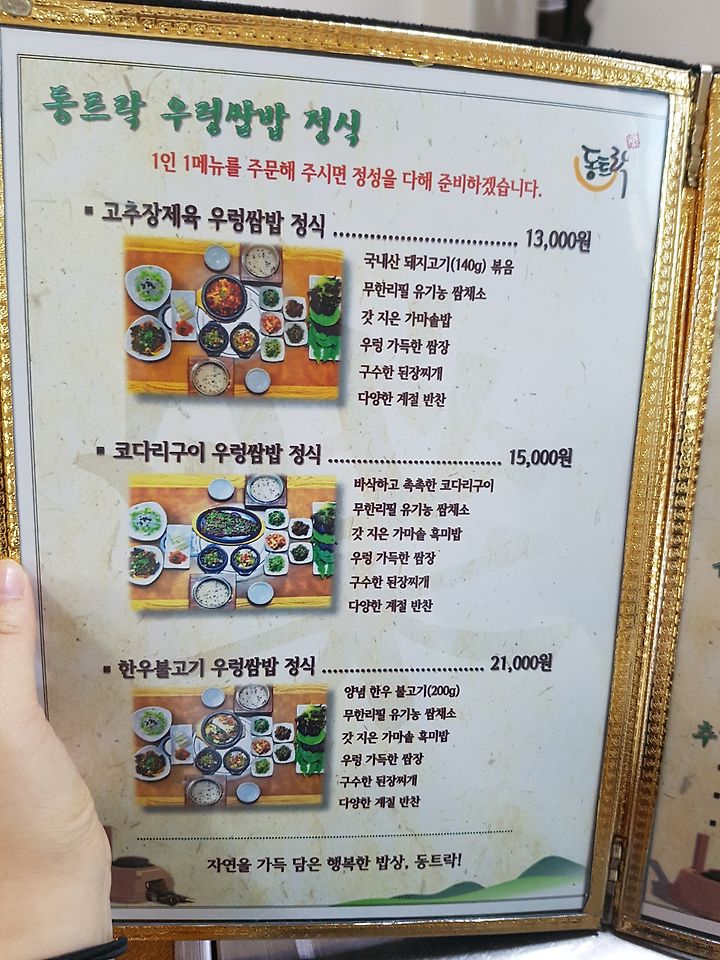 동트락 우렁쌈밥 정식
1인 1메뉴를 주문해 주시면 정성을 다해 준비하겠습니다.
동트락
▪ 고추장제육 우렁쌈밥 정식 ............................... 13,000원
국내산 돼지고기(140g) 볶음
무한리필 유기농 쌈채소
갓 지은 가마솥밥
우렁 가득한 쌈장
구수한 된장찌개
다양한 계절 반찬
▪ 코다리구이 우렁쌈밥 정식 ............................... 15,000원
바삭하고 촉촉한 코다리구이
무한리필 유기농 쌈채소
갓 지은 가마솥 흑미밥
우렁 가득한 쌈장
구수한 된장찌개
다양한 계절 반찬
▪ 한우불고기 우렁쌈밥 정식 ............................. 21,000원
양념 한우 불고기(200g)
무한리필 유기농 쌈채소
갓 지은 가마솥 흑미밥
우렁 가득한 쌈장
구수한 된장찌개
다양한 계절 반찬
자연을 가득 담은 행복한 밥상, 동트락!
추